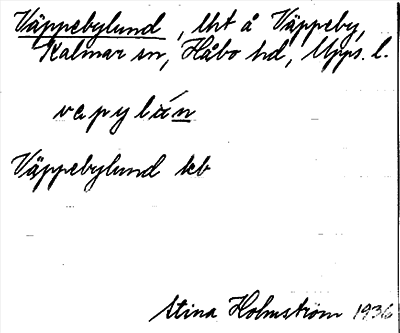 Väppebylund, lht å Väppeby,
Kalmar sn, Håbo hd, Upps. l.
vapylán
Väppebylund kb
Stina Holmström 1936